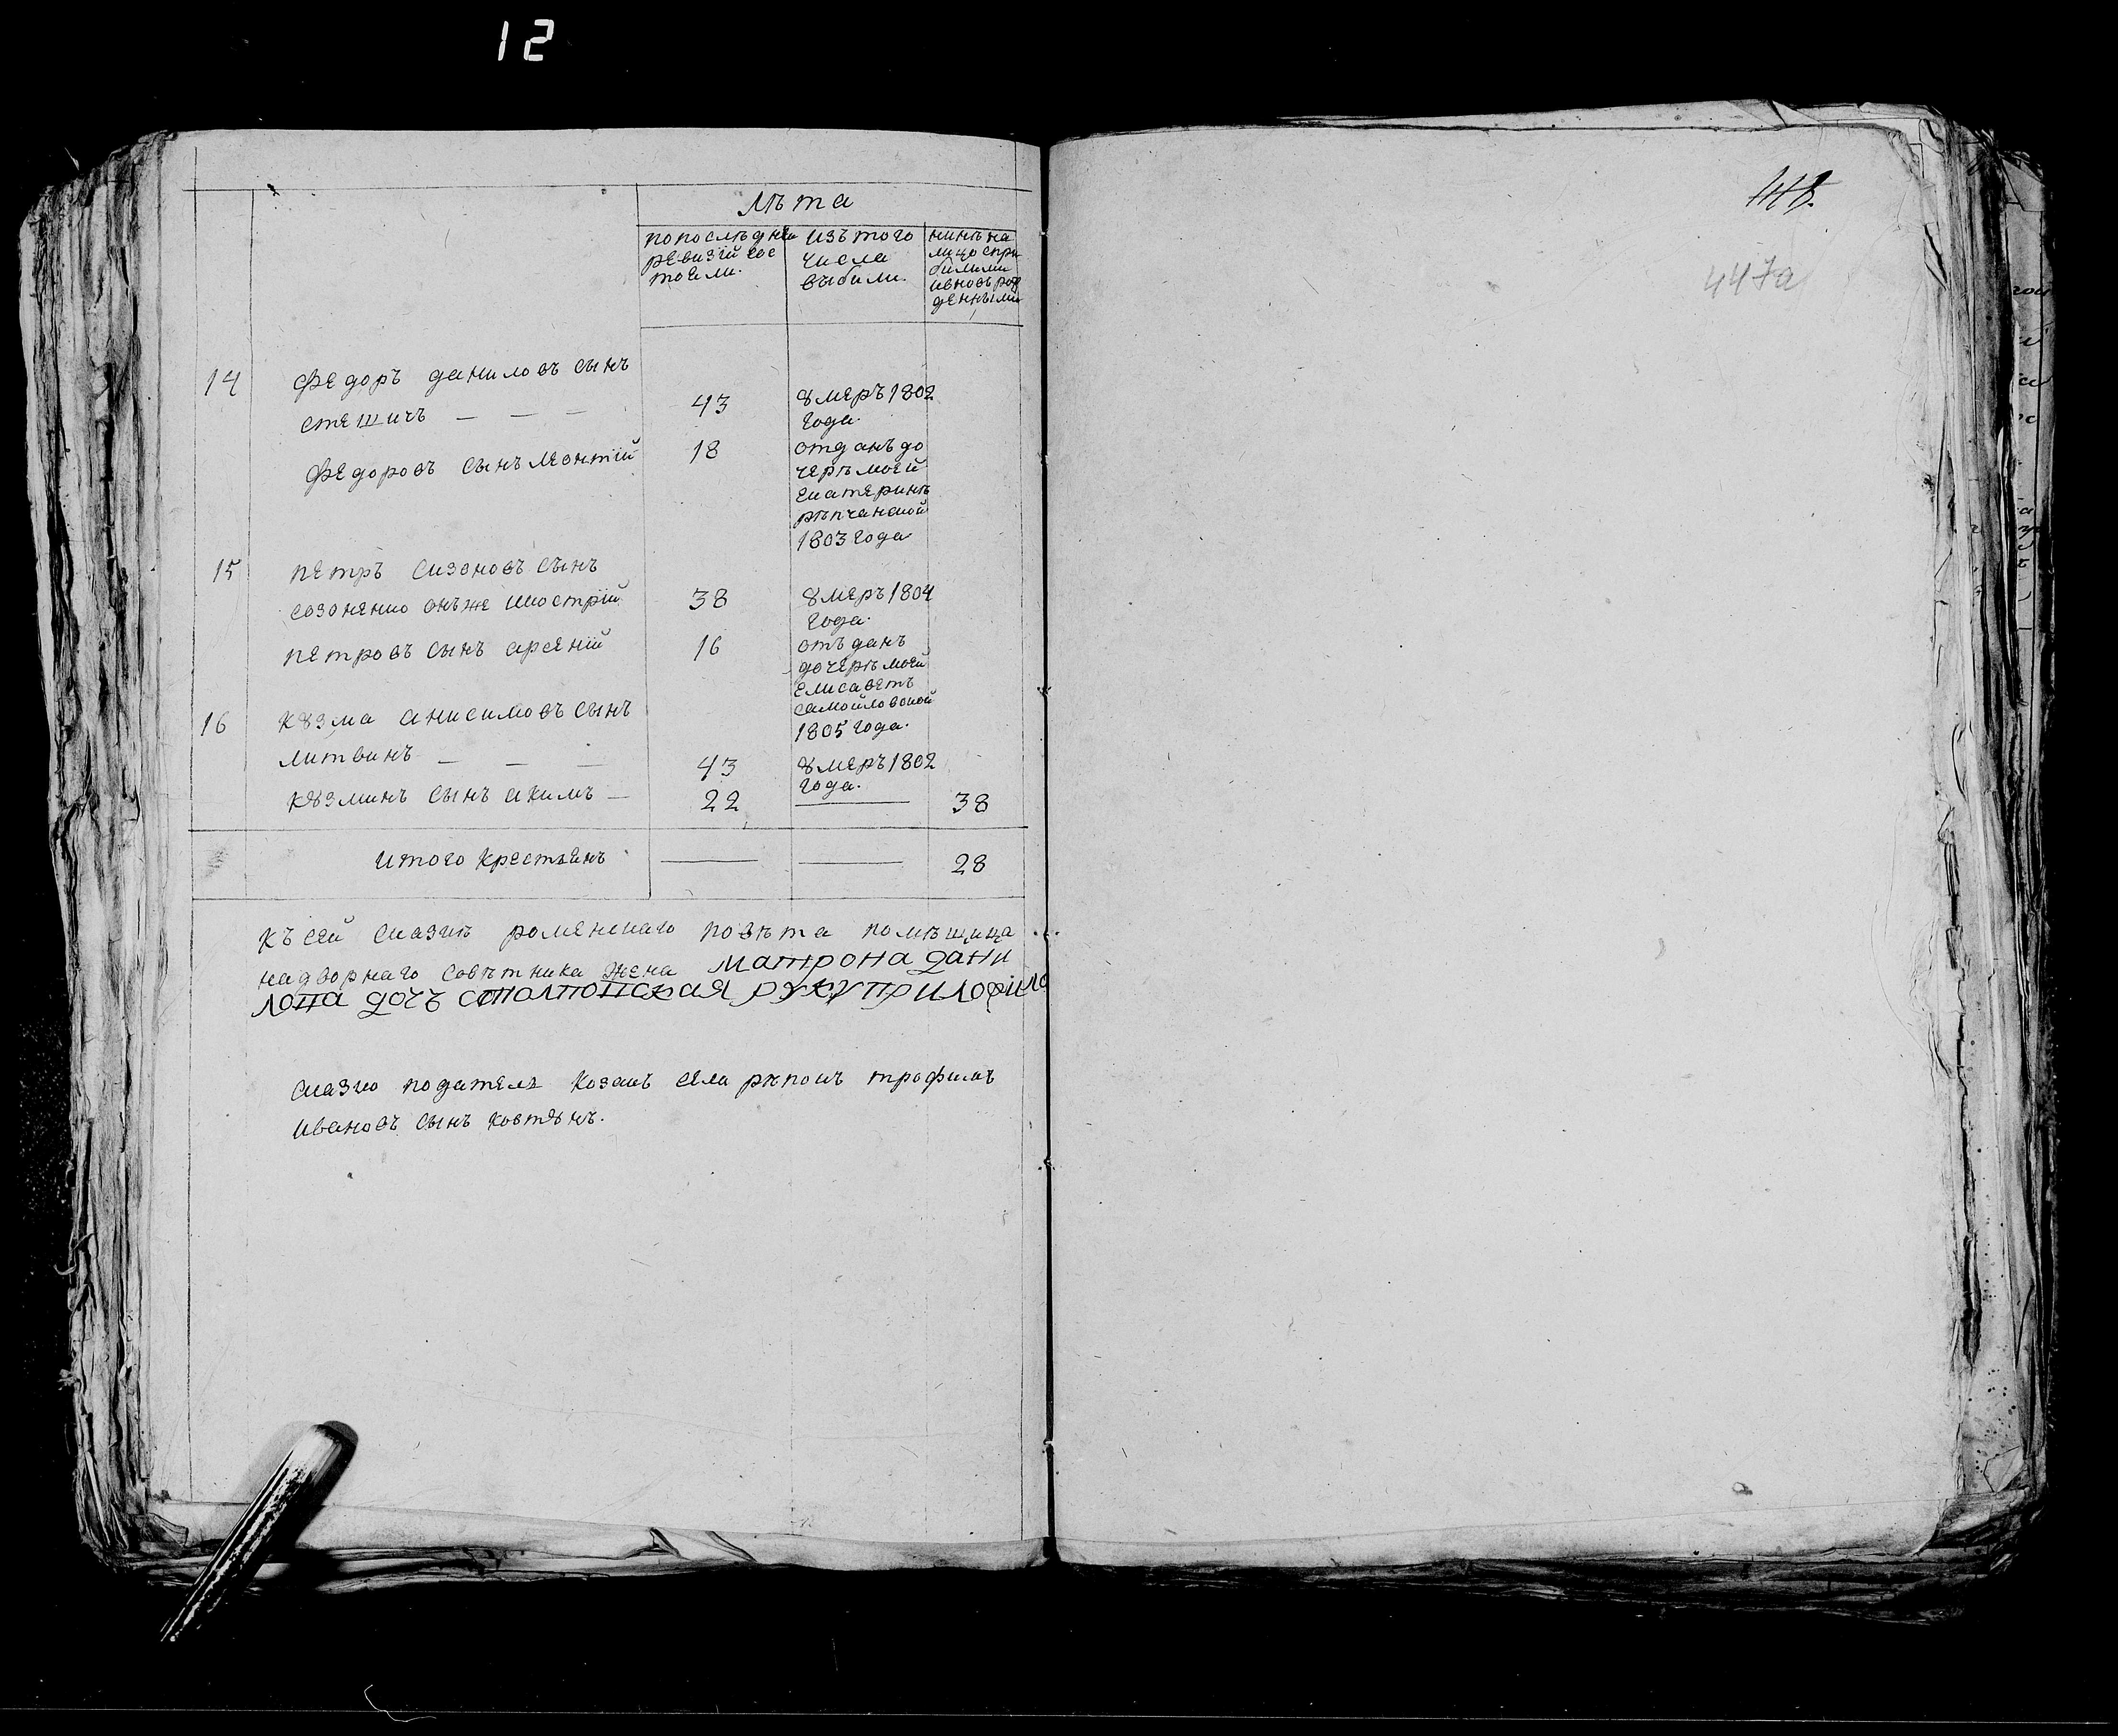 12
лѣта
попослѣдней изътого нинѣна
ревизій сос числа лицо спри
тояли. выбили. билими
ивновъ рож
денными
14 Федоръ даниловъ сынъ
стешичъ — — — 43 ꙋмеръ 1802
года.
Федоровъ сынъ леонтій 18 отданъ до
черѣ моей
екатеринѣ
рѣпчанской
1803 года
15 петръ сизоновъ сынъ
созоненко онъже шострій 38 ꙋмеръ 1804
года.
петровъ сынъ арсеній 16 отъданъ
дочерѣ моей
елисаветъ
самойловокой
1805 года.
16 кꙋзма анисимовъ сынъ
литвинъ — — — 43 ꙋмеръ 1802
года.
кꙋзминъ сынъ акимъ — 22 — 38
итого крестьянъ — — 28
къ сей сказкѣ роменскаго повѣта помѣщица
надворнаго совѣтника жена матрона дани
лопа дочъ столпопская руку приложила
сказко податель козакъ села рѣпокъ трофимъ
ивановъ сынъ ковтꙋнъ.
447а